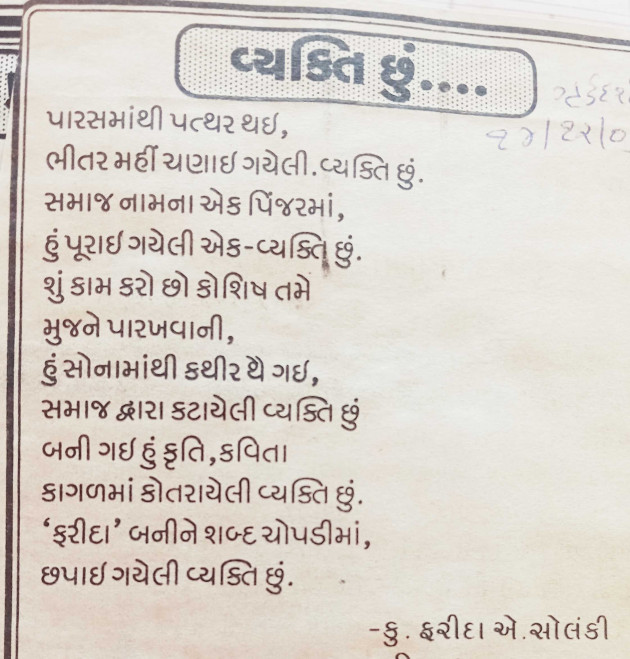 વ્યક્તિ છું....
પારસમાંથી પત્થર થઇ,
ભીતર મહીં ચણાઇ ગયેલી.વ્યક્તિ છું.
સમાજ નામના એક પિંજરમાં,
હું પૂરાઇ ગયેલી એક-વ્યક્તિ છું.
શું કામ કરો છો કોશિષ તમે
મુજને પારખવાની,
હું સોનામાંથી કથીર થૈ ગઇ,
સમાજ દ્વારા કટાયેલી વ્યક્તિ છું
બની ગઇ હું કૃતિ,કવિતા
કાગળમાં કોતરાયેલી વ્યક્તિ છું.
‘ફરીદા’ બનીને શબ્દ ચોપડીમાં,
છપાઇ ગયેલી વ્યક્તિ છું.
-કુ. ફરીદા એ.સોલંકી